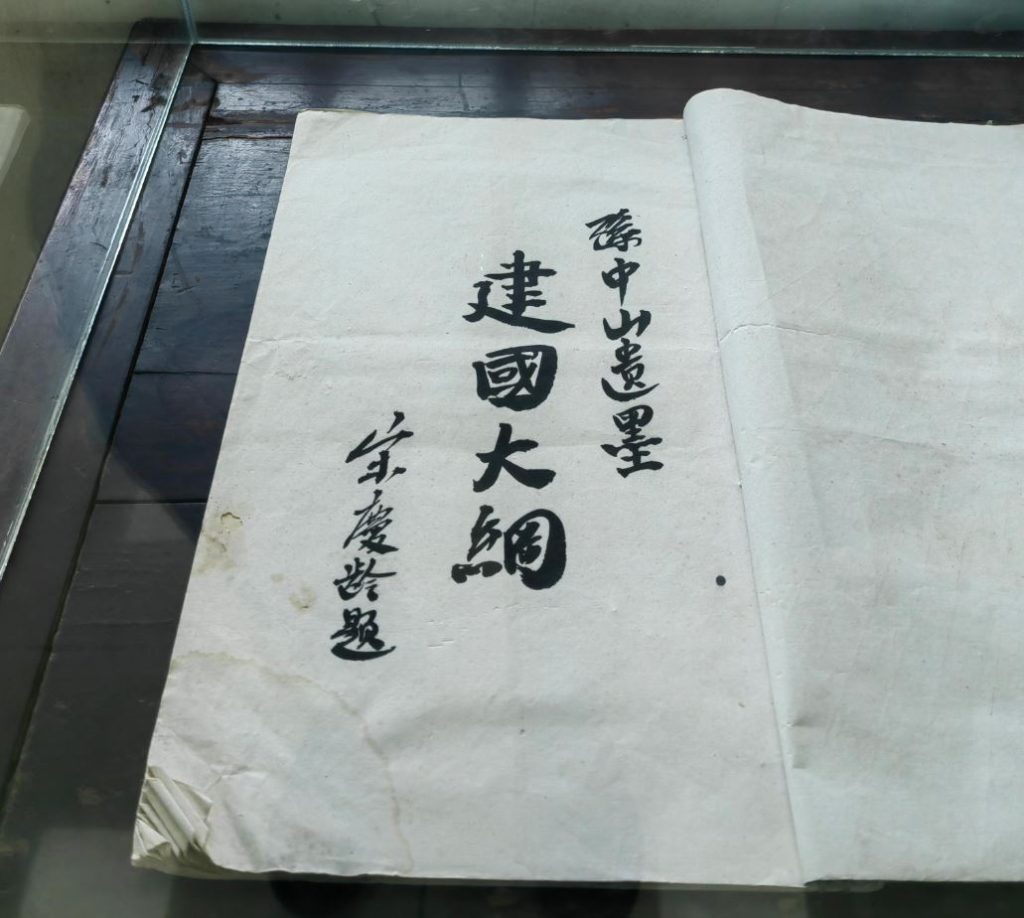 孫中山遺墨
建國大綱
宋慶齡題